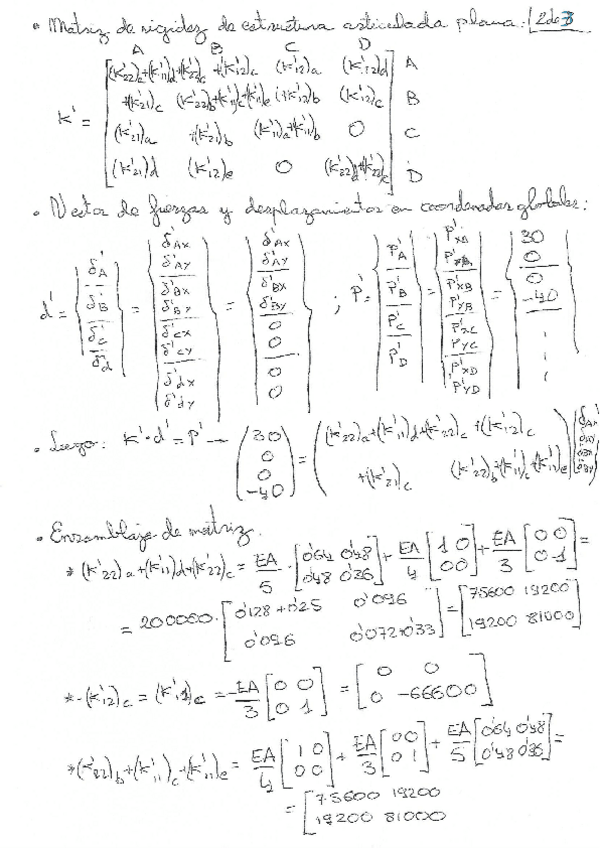 • Matriz de rigidez de estructura articulada plana: 2 de 3
A B C D
K' = [ (K'22)a+(K'11)d+(K'22)c +(K'12)c (K'12)a (K'12)d ] A
+(K'21)c (K'22)b+(K'11)c+(K'11)e (+K'12)b (K'12)c B
(K'21)a +(K'21)b (K'11)a+(K'11)b 0 C
(K'21)d (K'12)e 0 (K'22)d+(K'22)e D
• Vector de fuerzas y desplazamientos en coordenadas globales:
d' = { δ'A δ'B δ'C δ'd } = { δ'AX δ'AY δ'BX δ'BY δ'CX δ'CY δ'dX δ'dY } = { δ'AX δ'AY δ'BX δ'BY 0 0 0 0 } ; P' = { P'A P'B P'C P'D } = { P'XA P'YA P'XB P'YB P'XC P'YC P'XD P'YD } = { 30 0 0 -40 }
• Luego: K'·d' = P' — ( 30 0 0 -40 ) = ( (K'22)a+(K'11)d+(K'22)c +(K'12)c
+(K'21)c (K'22)b+(K'11)c+(K'11)e )
• Ensamblaje de matriz.
* (K'22)a+(K'11)d+(K'22)c = EA/5 · [ 0'64 0'48 0'48 0'36 ] + EA/4 [ 1 0 0 0 ] + EA/3 [ 0 0 0 1 ] =
= 200000 · [ 0'128+0'25 0'096 0'096 0'072+0'33 ] = [ 75600 19200 19200 81000 ]
* -(K'12)c = (K'21)c = -EA/3 [ 0 0 0 1 ] = [ 0 0 0 -66600 ]
* (K'22)b+(K'11)c+(K'11)e = EA/4 [ 1 0 0 0 ] + EA/3 [ 0 0 0 1 ] + EA/5 [ 0'64 0'48 0'48 0'36 ] =
= [ 75600 19200 19200 81000